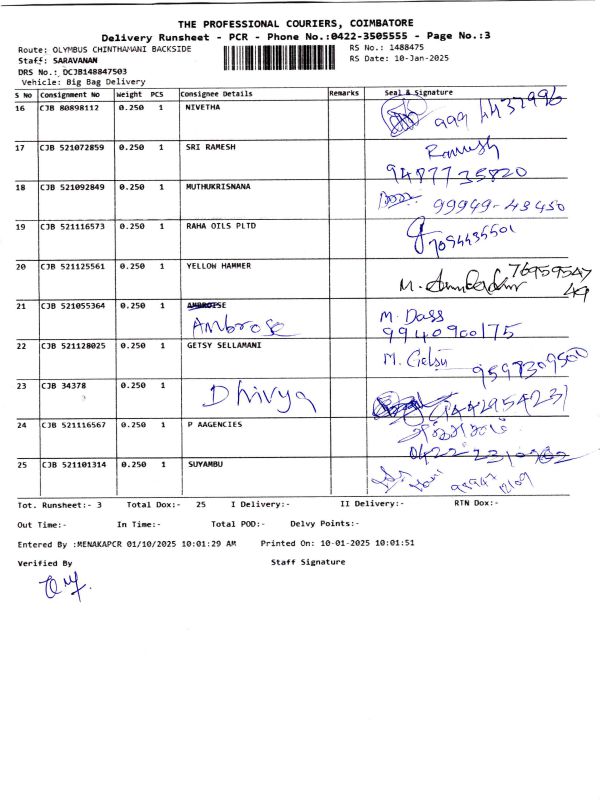 THE PROFESSIONAL COURIERS, COIMBATORE
Delivery Runsheet - PCR - Phone No.:0422-3505555 - Page No.:3
Route: OLYMBUS CHINTHAMANI BACKSIDE RS No.: 1488475
Staff: SARAVANAN RS Date: 10-Jan-2025
DRS No.: DCJB148847503
Vehicle: Big Bag Delivery
S No Consignment No Weight PCS Consignee Details Remarks Seal & Signature
16 CJB 80898112 0.250 1 NIVETHA
17 CJB 521072859 0.250 1 SRI RAMESH Ramesh
9487735820
18 CJB 521092849 0.250 1 MUTHUKRISNANA 99949-43450
19 CJB 521116573 0.250 1 RAHA OILS PLTD
20 CJB 521125561 0.250 1 YELLOW HAMMER 76959547
49
21 CJB 521055364 0.250 1 AMBROISE M. Dass
Ambrose 9940900175
22 CJB 521128025 0.250 1 GETSY SELLAMANI M. Getsy
9597309500
23 CJB 34378 0.250 1 Dhivya
24 CJB 521116567 0.250 1 P AAGENCIES
25 CJB 521101314 0.250 1 SUYAMBU
Tot. Runsheet:- 3 Total Dox:- 25 I Delivery:- II Delivery:- RTN Dox:-
Out Time:- In Time:- Total POD:- Delvy Points:-
Entered By :MENAKAPCR 01/10/2025 10:01:29 AM Printed On: 10-01-2025 10:01:51
Verified By Staff Signature